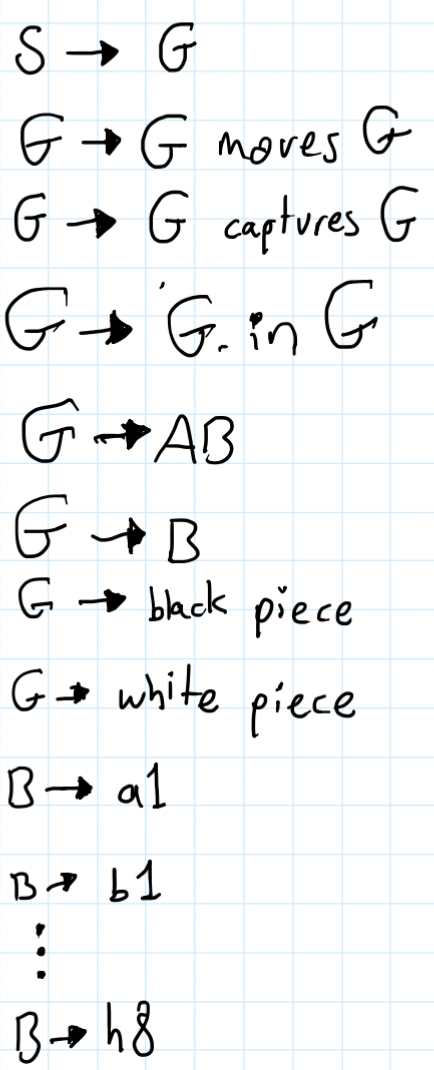 S → G
G → G moves G
G → G captures G
G → G. in G
G → AB
G → B
G → black piece
G → white piece
B → a1
B → b1
⋮
B → h8